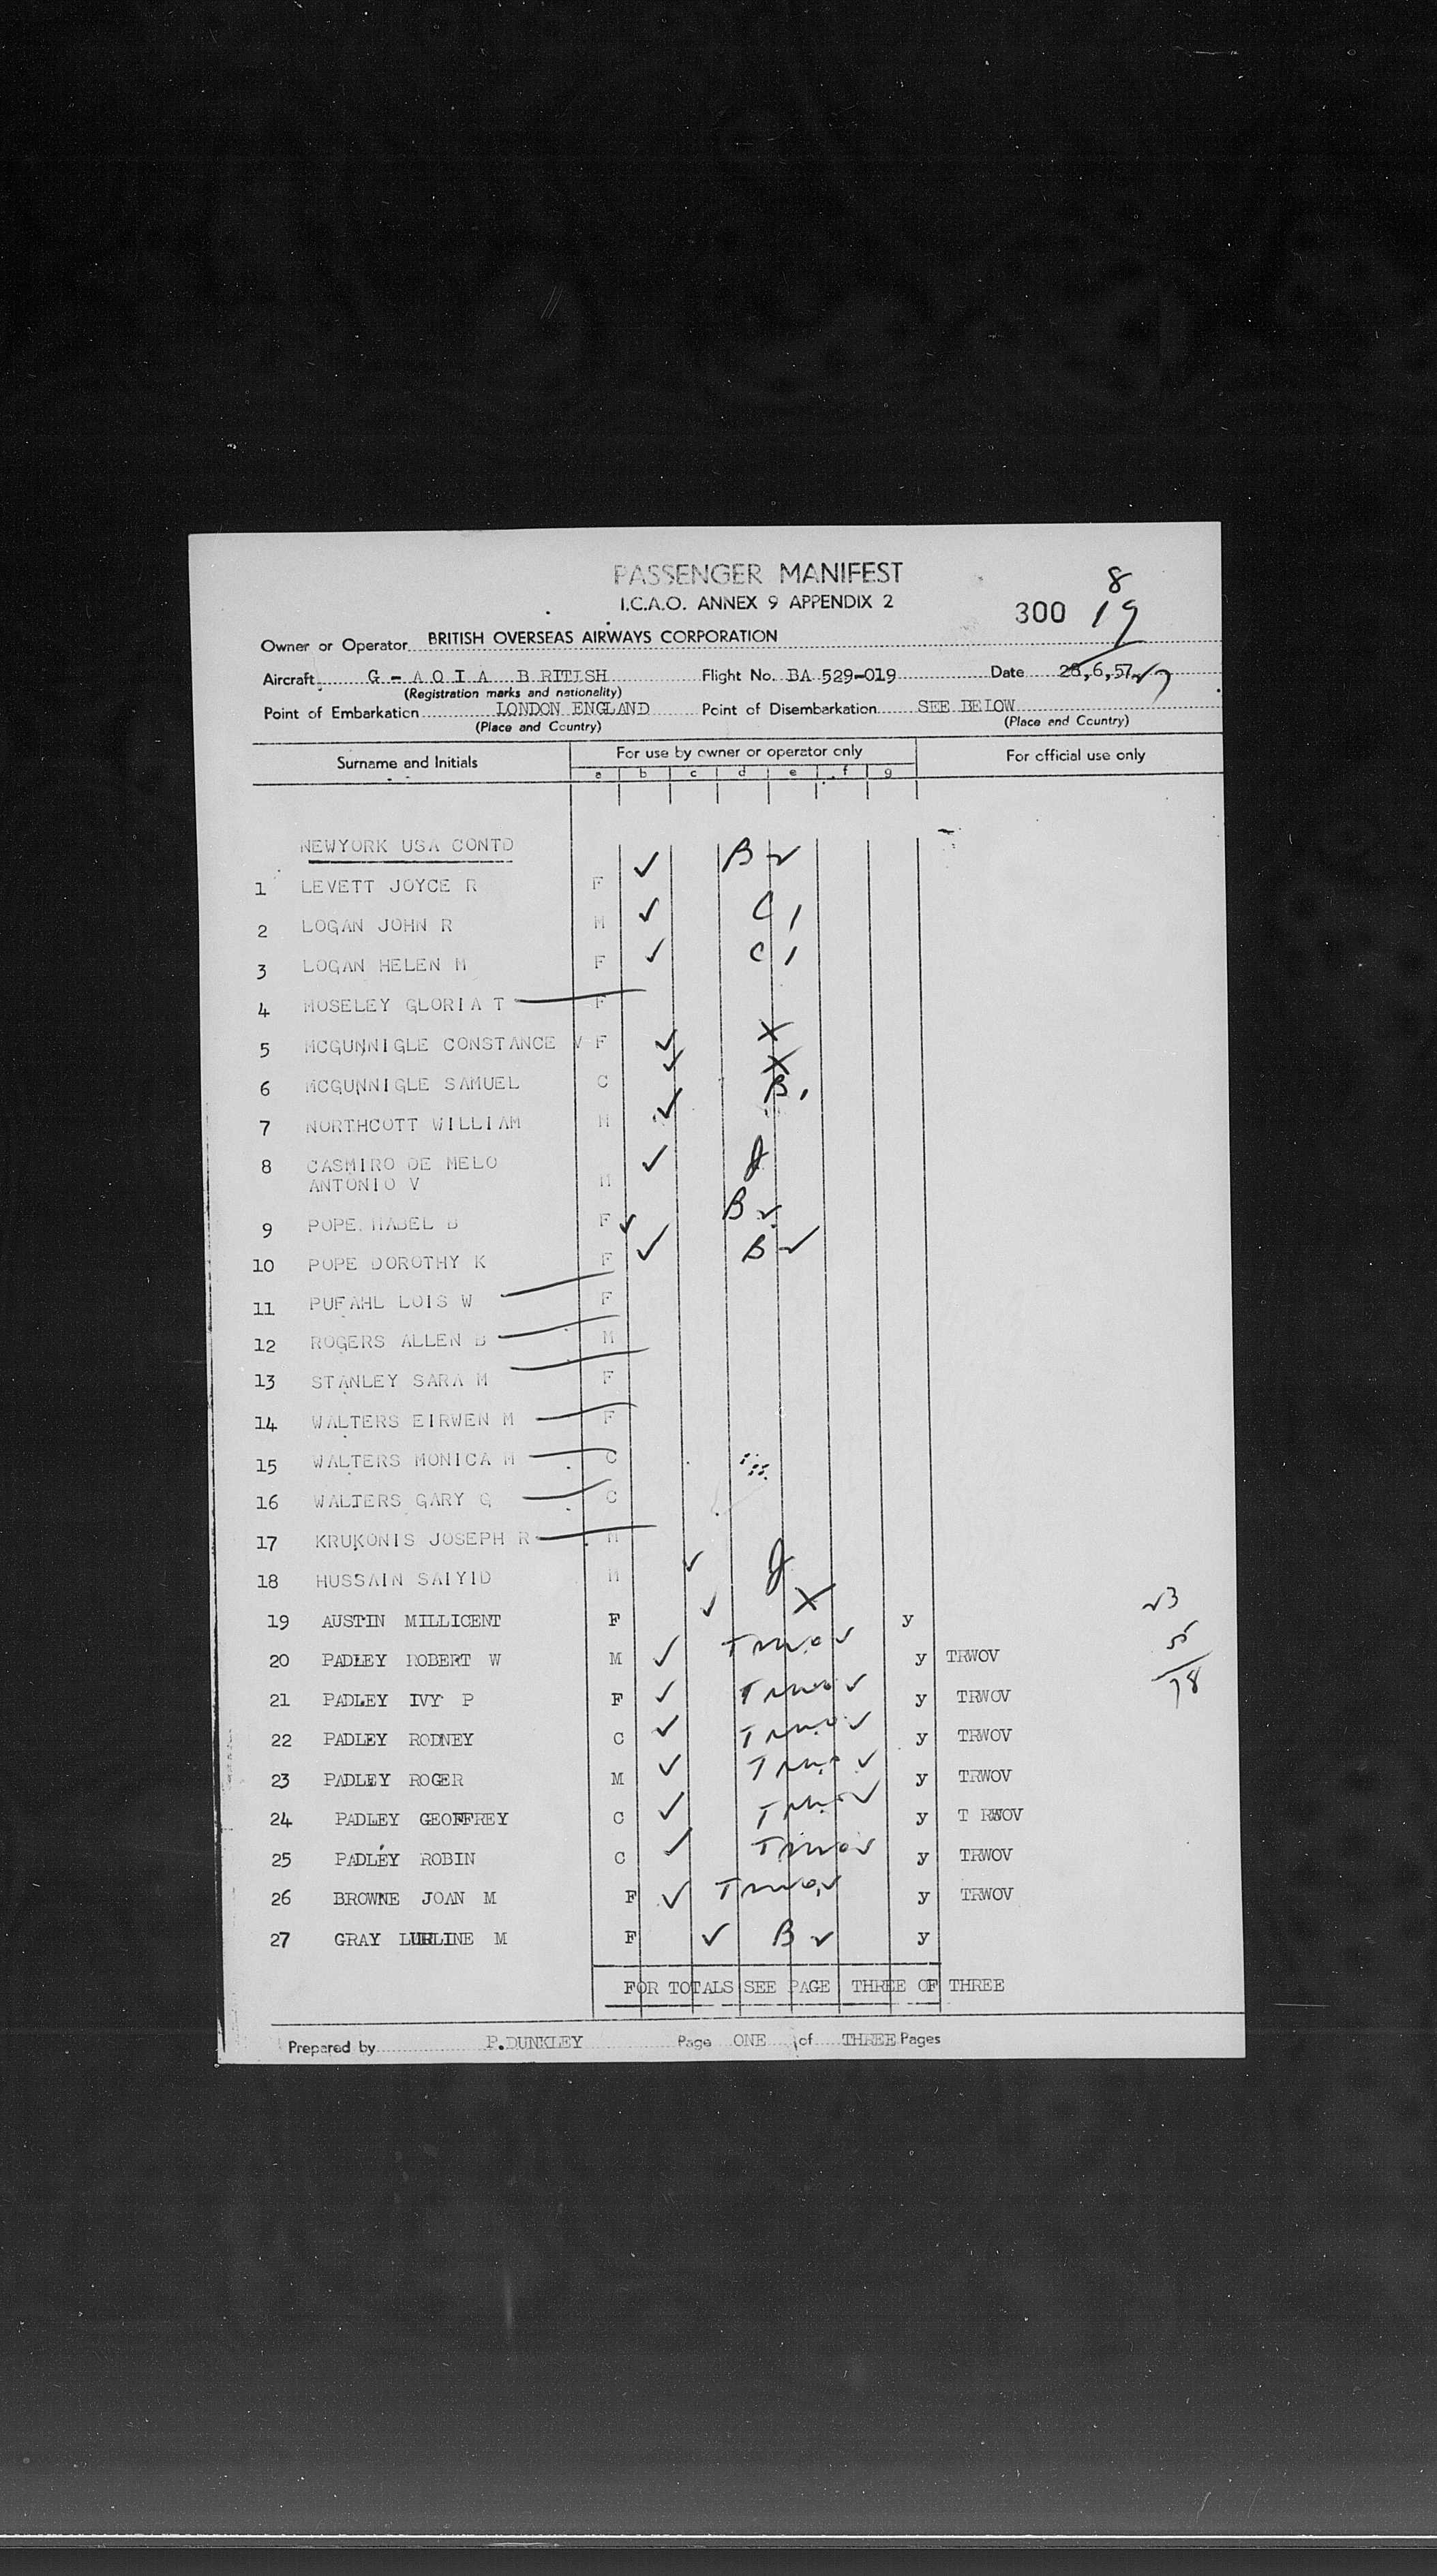 PASSENGER MANIFEST
I.C.A.O. ANNEX 9 APPENDIX 2
8
300 19
Owner or Operator BRITISH OVERSEAS AIRWAYS CORPORATION
Aircraft G - A O I A B RITISH Flight No. BA 529-019 Date 28,6,57
(Registration marks and nationality)
Point of Embarkation LONDON ENGLAND Point of Disembarkation SEE BELOW
(Place and Country) (Place and Country)
Surname and Initials For use by owner or operator only For official use only
a b c d e f g
NEWYORK USA CONTD
1 LEVETT JOYCE R F ✓ B ✓
2 LOGAN JOHN R M ✓ C 1
3 LOGAN HELEN M F ✓ C 1
4 MOSELEY GLORIA T F
5 MCGUNNIGLE CONSTANCE V F ✓ X
6 MCGUNNIGLE SAMUEL C ✓ X
7 NORTHCOTT WILLIAM M ✓ B
8 CASMIRO DE MELO
ANTONIO V M ✓
9 POPE MABEL B F ✓ B ✓
10 POPE DOROTHY K F ✓ B ✓
11 PUFAHL LOIS W F
12 ROGERS ALLEN B M
13 STANLEY SARA M F
14 WALTERS EIRWEN M F
15 WALTERS MONICA M C
16 WALTERS GARY G C
17 KRUKONIS JOSEPH R M
18 HUSSAIN SAIYID M ✓
19 AUSTIN MILLICENT F ✓ X y
20 PADLEY ROBERT W M ✓ TRWOV y TRWOV
21 PADLEY IVY P F ✓ TRWOV y TRWOV
22 PADLEY RODNEY C ✓ TRWOV y TRWOV
23 PADLEY ROGER M ✓ TRWOV y TRWOV
24 PADLEY GEOFFREY C ✓ TRWOV y T RWOV
25 PADLEY ROBIN C ✓ TRWOV y TRWOV
26 BROWNE JOAN M F ✓ TRWOV y TRWOV
27 GRAY LURLINE M F ✓ B ✓ y
FOR TOTALS SEE PAGE THREE OF THREE
Prepared by P.DUNKLEY Page ONE of THREE Pages